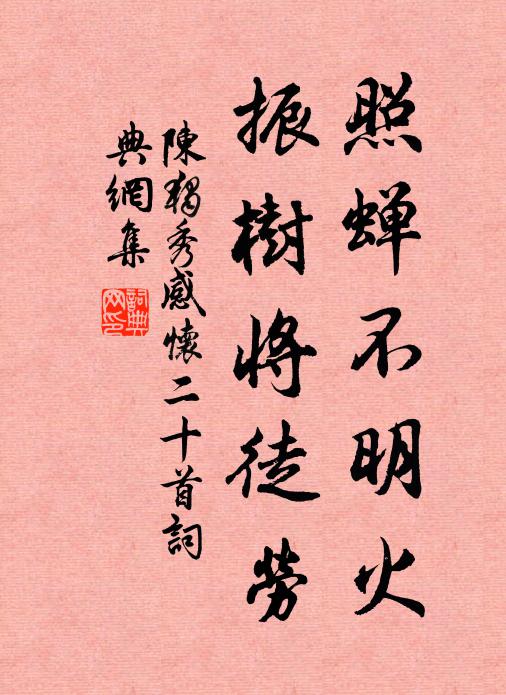 照蝉不明火
振樹將徒勞
陳獨秀感懷二十首詞
典網集
詞典网印